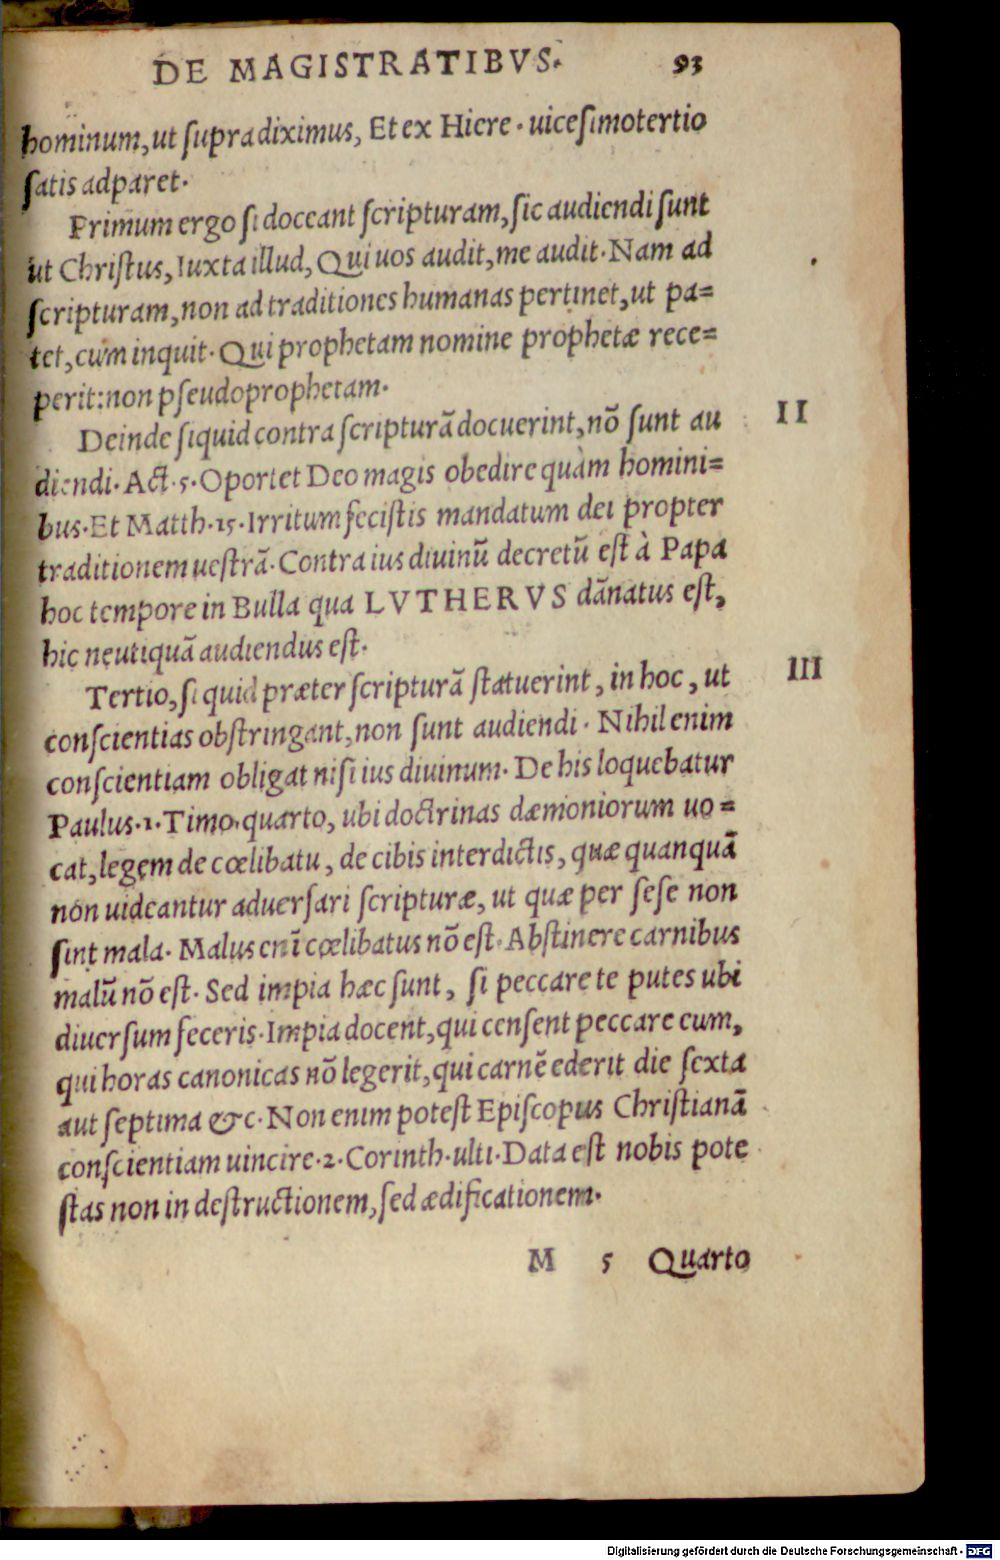 DE MAGISTRATIBVS. 93
hominum, ut ſupra diximus, Et ex Hiere. uiceſimotertio
ſatis adparet.
Primum ergo ſi doceant ſcripturam, ſic audiendi ſunt
ut Chriſtus, Iuxta illud, Qui uos audit, me audit. Nam ad
ſcripturam, non ad traditiones humanas pertinet, ut pa=
tet, cum inquit. Qui prophetam nomine prophetæ rece=
perit: non pſeudoprophetam.
Deinde ſi quid contra ſcripturã docuerint, nõ ſunt au II
diendi. Act. 5. Oportet Deo magis obedire quàm homini=
bus. Et Matth. 15. Irritum feciſtis mandatum dei propter
traditionem ueſtrã. Contra ius diuinũ decretũ eſt à Papa
hoc tempore in Bulla qua LVTHERVS dãnatus eſt,
hic neutiquã audiendus eſt.
Tertio, ſi quid præter ſcripturã ſtatuerint, in hoc, ut III
conſcientias obſtringant, non ſunt audiendi. Nihil enim
conſcientiam obligat niſi ius diuinum. De his loquebatur
Paulus. 1. Timo. quarto, ubi doctrinas dæmoniorum uo=
cat, legem de cœlibatu, de cibis interdictis, quæ quanquã
non uideantur aduerſari ſcripturæ, ut quæ per ſeſe non
ſint mala. Malus enĩ cœlibatus nõ eſt. Abſtinere carnibus
malũ nõ eſt. Sed impia hæc ſunt, ſi peccare te putes ubi
diuerſum feceris. Impia docent, qui cenſent peccare eum,
qui horas canonicas nõ legerit, qui carnẽ ederit die ſexta
aut ſeptima &c. Non enim poteſt Epiſcopus Chriſtianã
conſcientiam uincire. 2. Corinth. ulti. Data eſt nobis pote
ſtas non in deſtructionem, ſed ædificationem.
M 5 Quarto
Digitalisierung gefördert durch die Deutsche Forschungsgemeinschaft - DFG